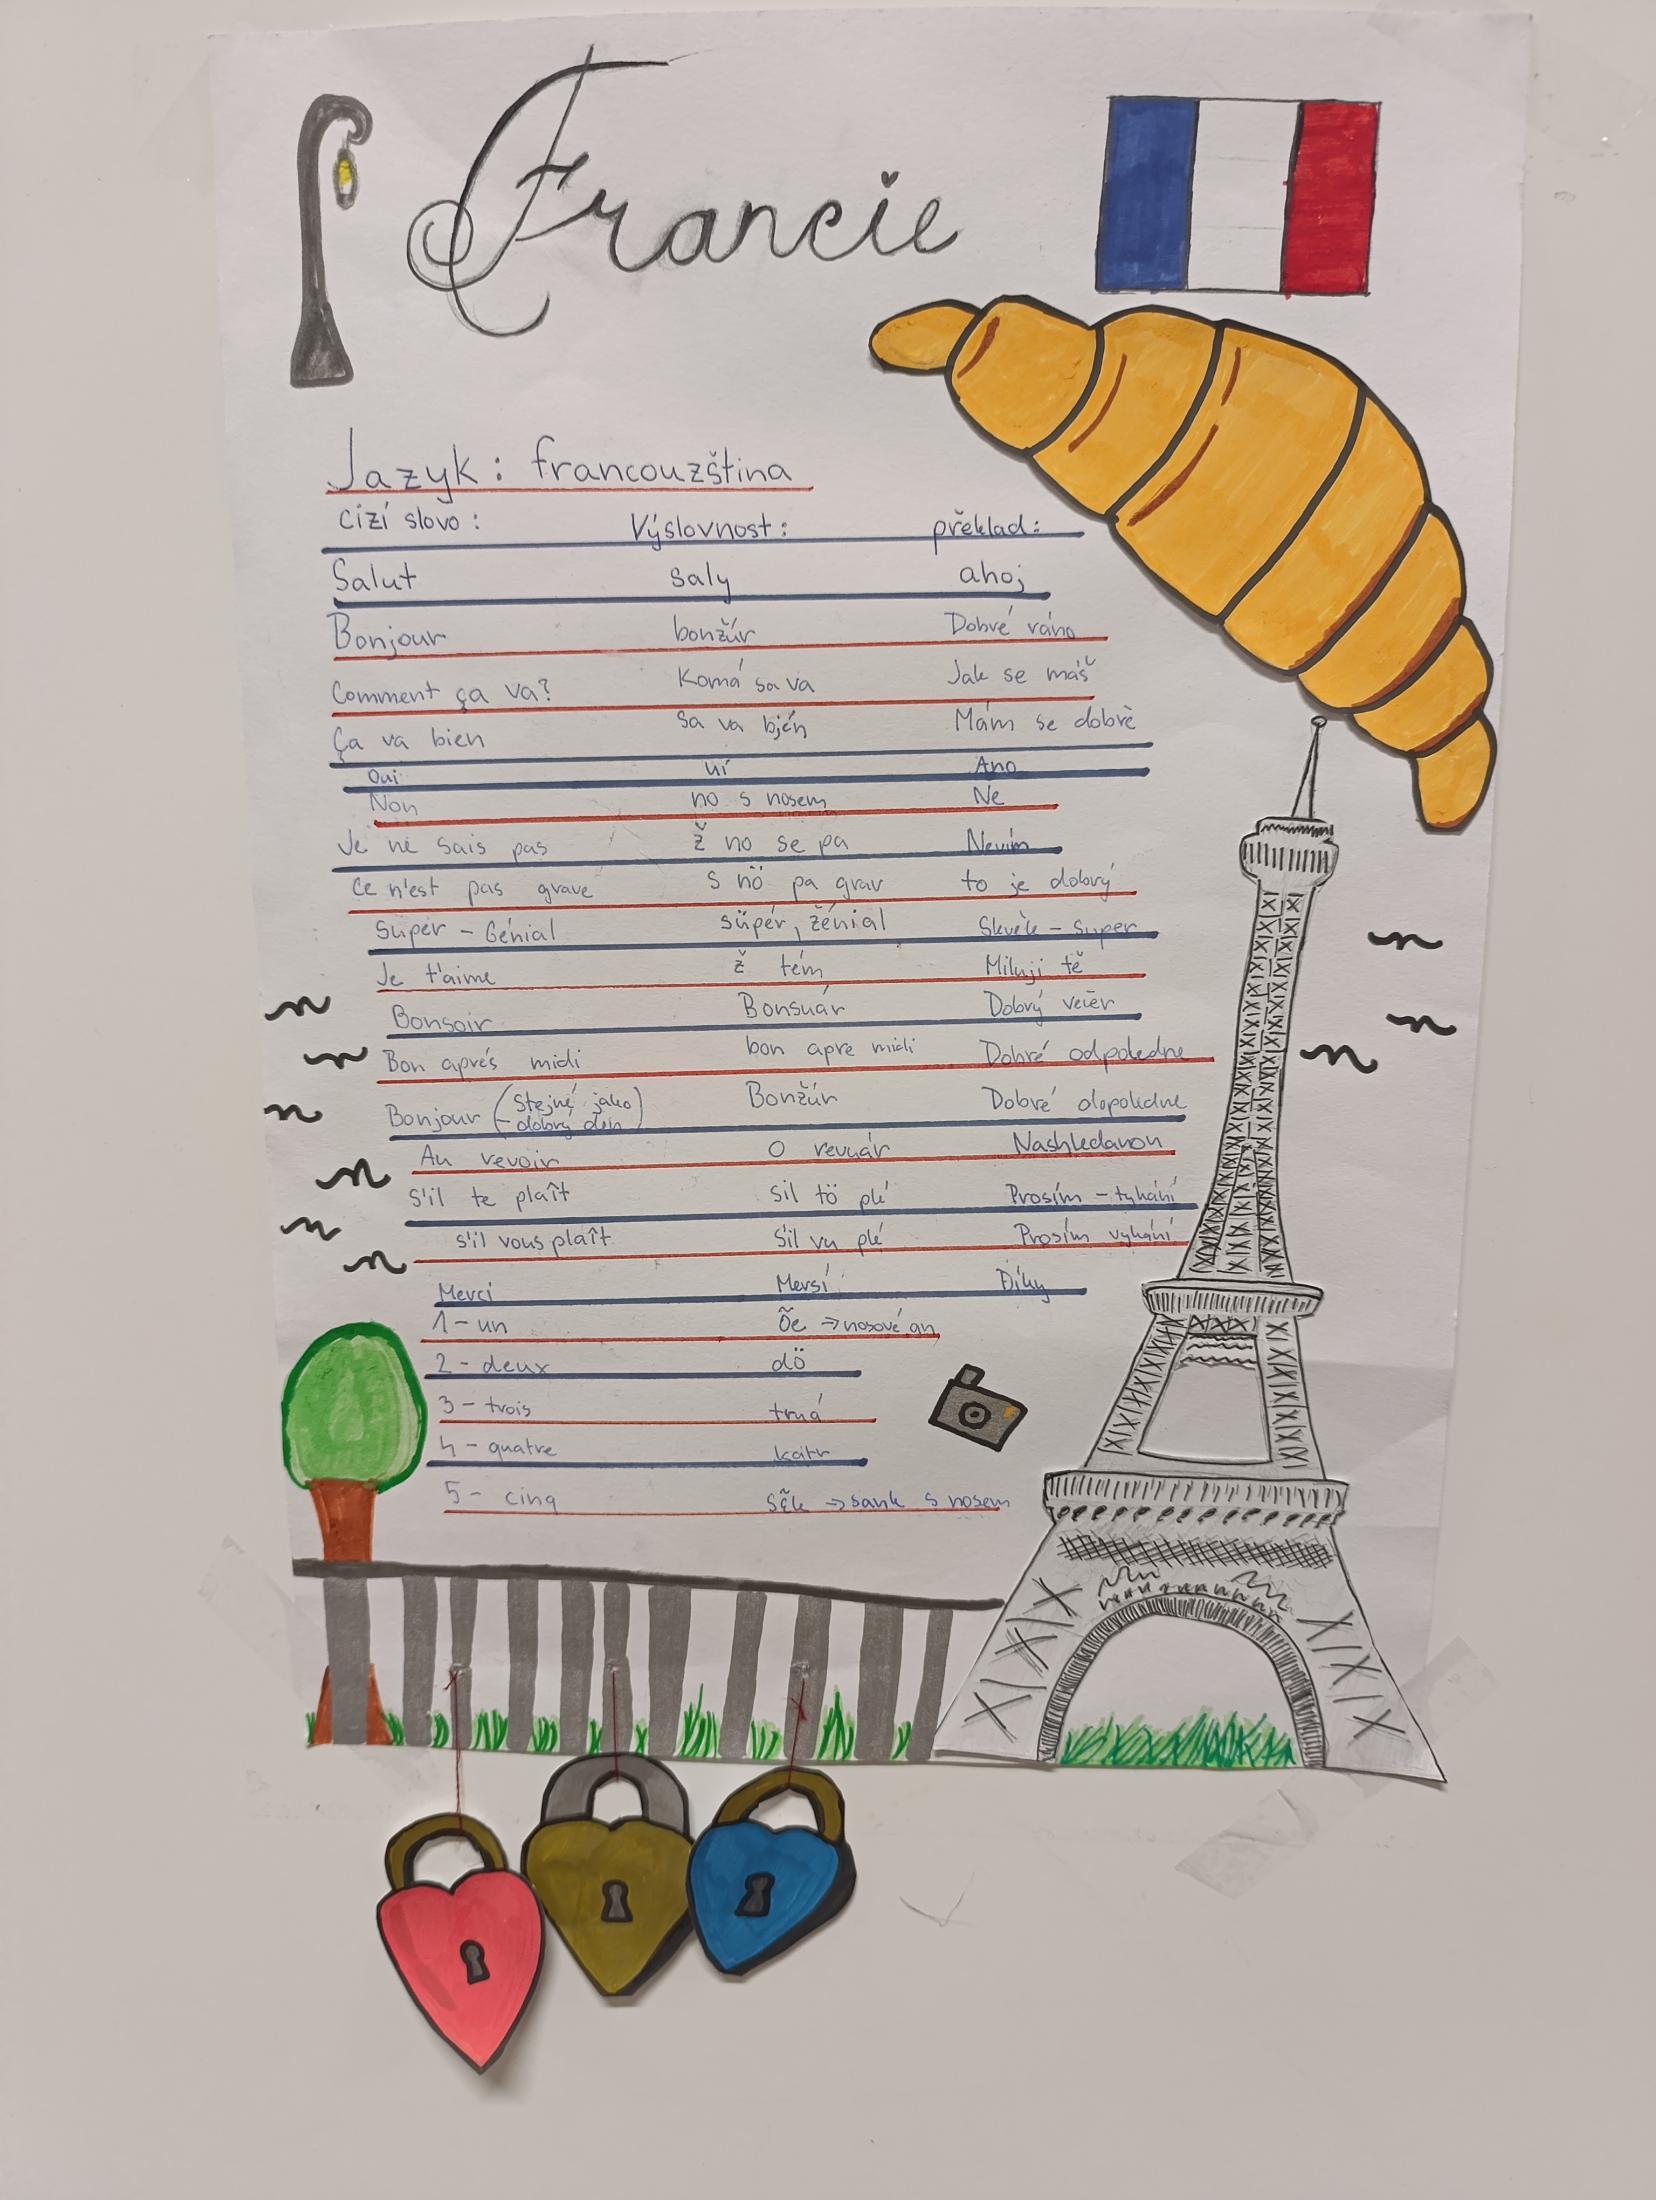 Francie
Jazyk: francouzština
cizí slovo: Výslovnost: překlad:
Salut saly ahoj
Bonjour bonžúr Dobré ráno
Comment ça va? Komá sa va Jak se máš
Ça va bien Sa va bjén Mám se dobrě
Oui uí Ano
Non no s nosem Ne
Je ne sais pas ž no se pa Nevím
Ce n'est pas grave s nö pa grav to je dobrý
Süpér - Génial süpér, žénial Skvěle - super
Je t'aime ž tém Miluji tě
Bonsoir Bonsuár Dobrý večer
Bon aprés midi bon apre midi Dobré odpoledne
Bonjour (Stejné jako Bonžúr Dobré dopoledne
- dobrý den)
Au revoir O revuár Nashledanou
S'il te plaît sil tö plé Prosím - tykání
s'il vous plaît Sil vu plé Prosím vykání
Merci Mersí Díky
1 - un õe → nosové an
2 - deux dö
3 - trois truá
4 - quatre katr
5 - cinq sẽk → sank s nosem